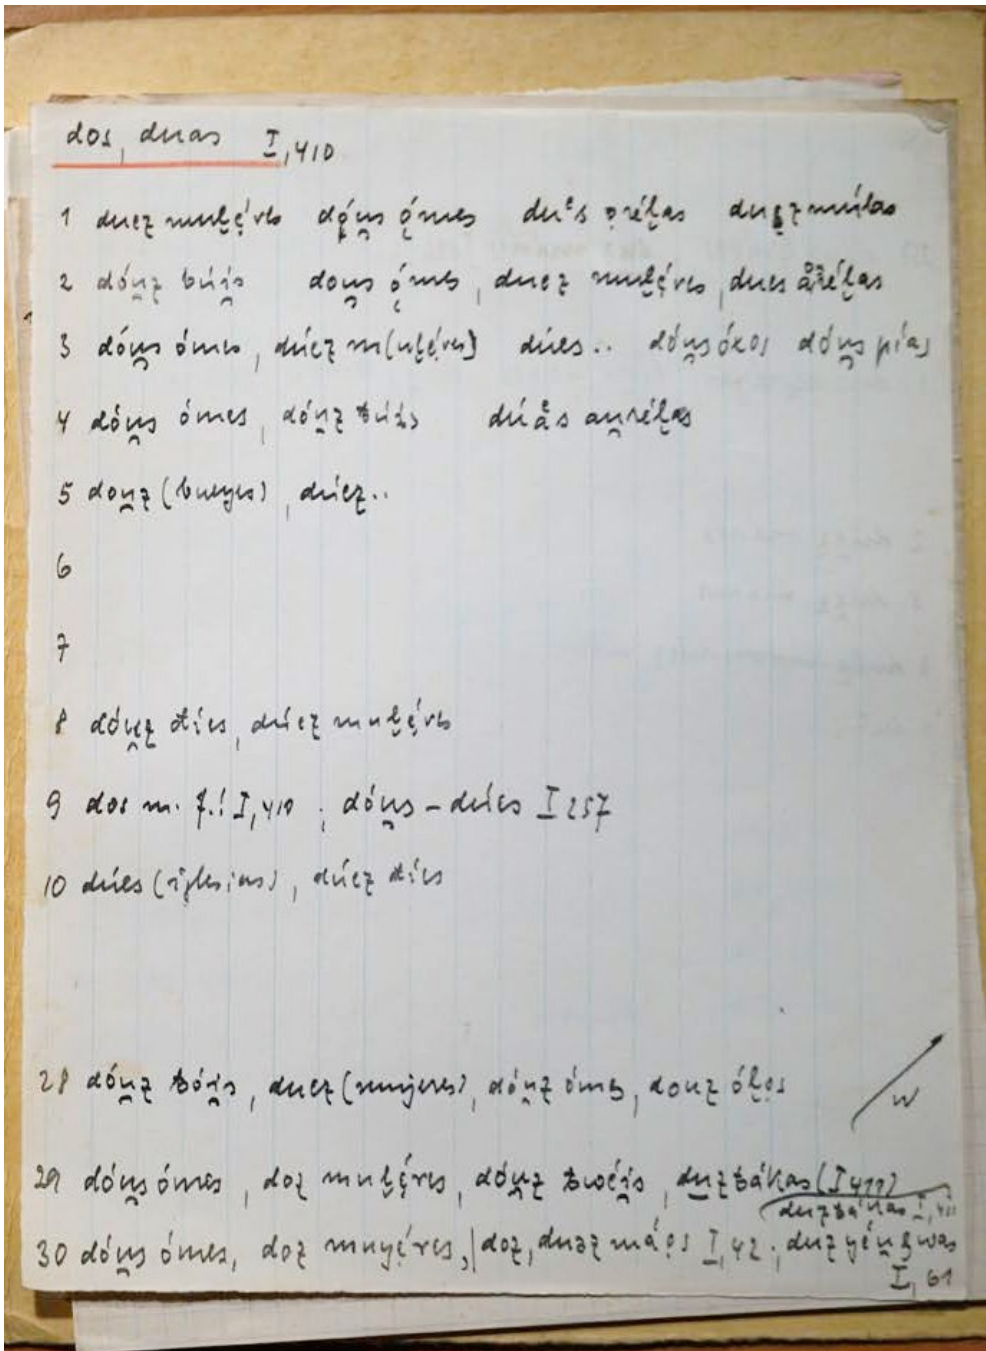 dos, duas I, 410
1 duez mul̮ę́res dóu̯s ǫ́mes dues orél̮as duez múlas
2 dóu̯z búi̯s dou̯s ǫ́mes, duez mul̮ę́res, dues
3 dóu̯s ómes, dúez m(ul̮ę́res) dúes.. dóu̯s ókos dóu̯s pías
4 dóu̯s ómes, dóu̯z dúas au̯rél̮as
5 dou̯z (bueyes), dúez..
6
7
8 dóu̯z díes, dúez mul̮ę́res
9 dos m. f.! I, 410; dóu̯s – dúes I 257
10 dúes (iglesias), dúez díes
28 dóu̯z bói̯s, duez (mujeres), dóu̯z ómes, douz ól̮os
W
29 dóu̯s ómes, doz mul̮ę́res, dóu̯z duz bákas (I 411)
duz bákas I, 411
30 dóu̯s ómes, doz muyę́res, | doz, duaz máos I, 42; duz yéngwas
I, 61